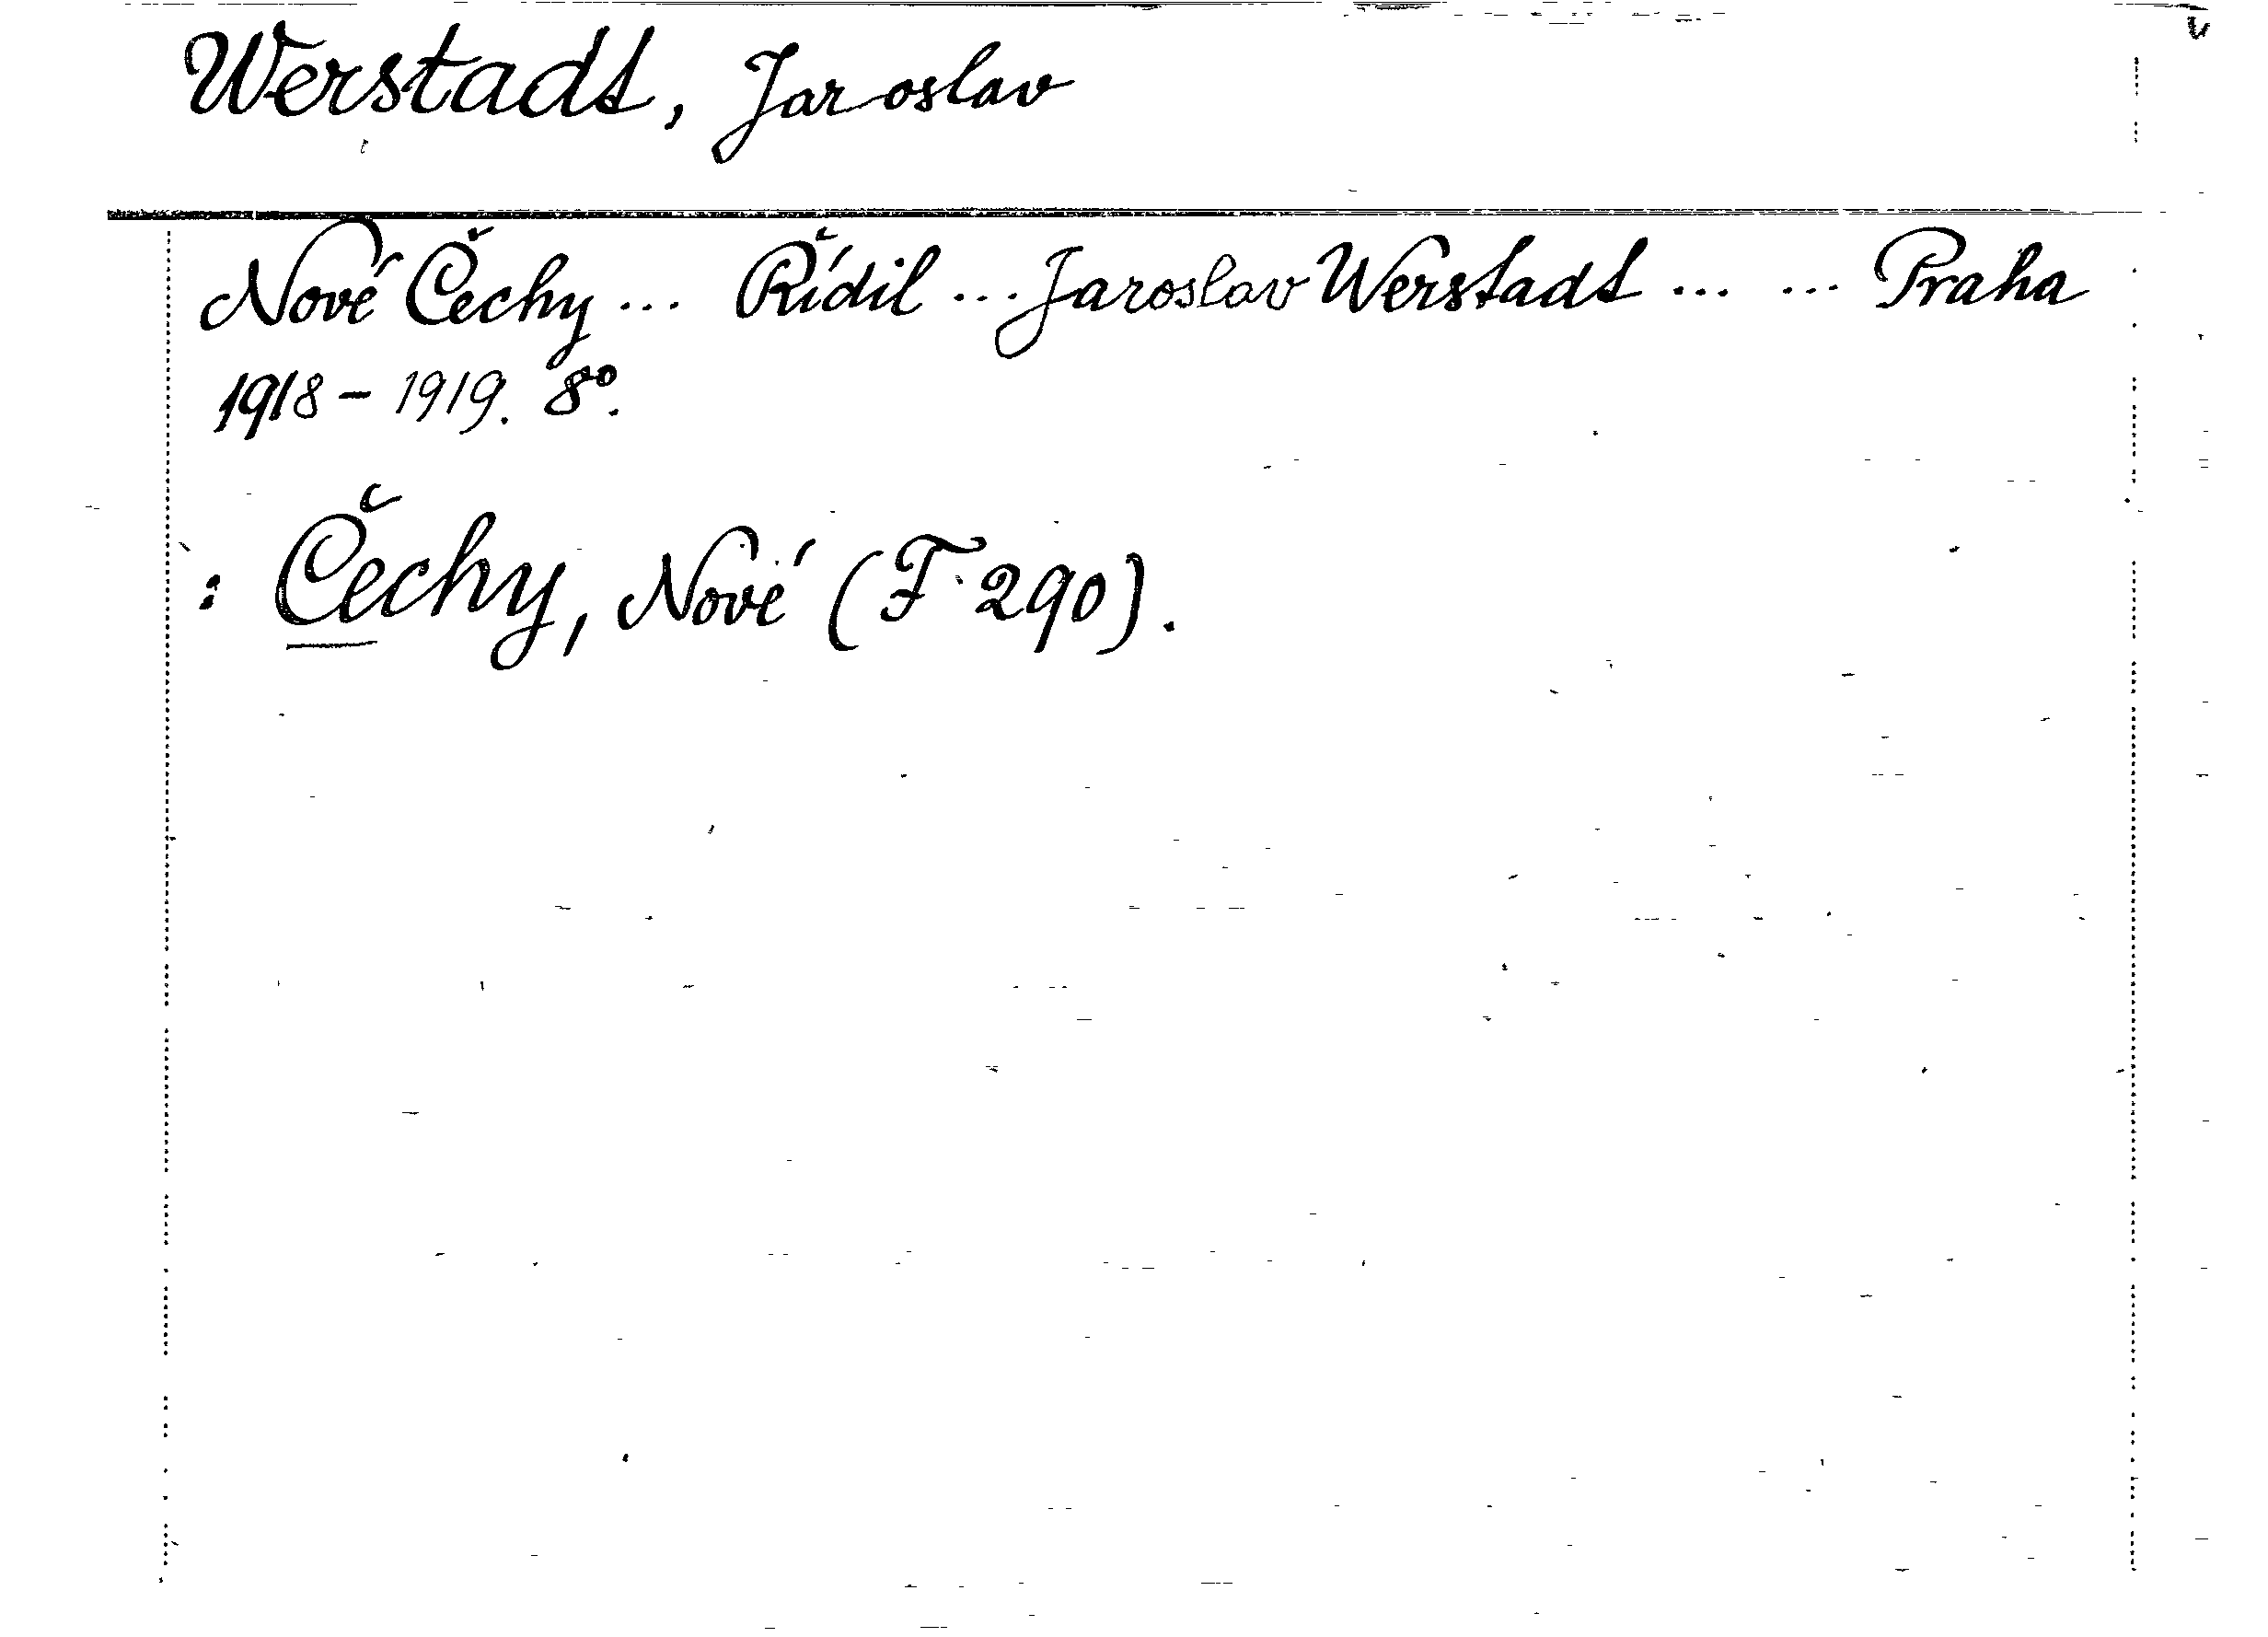 Werstadt, Jaroslav
Nové Čechy ... Řídil ... Jaroslav Werstadt ... ... Praha
1918 - 1919. 8°.
: Čechy, Nové (F 290).